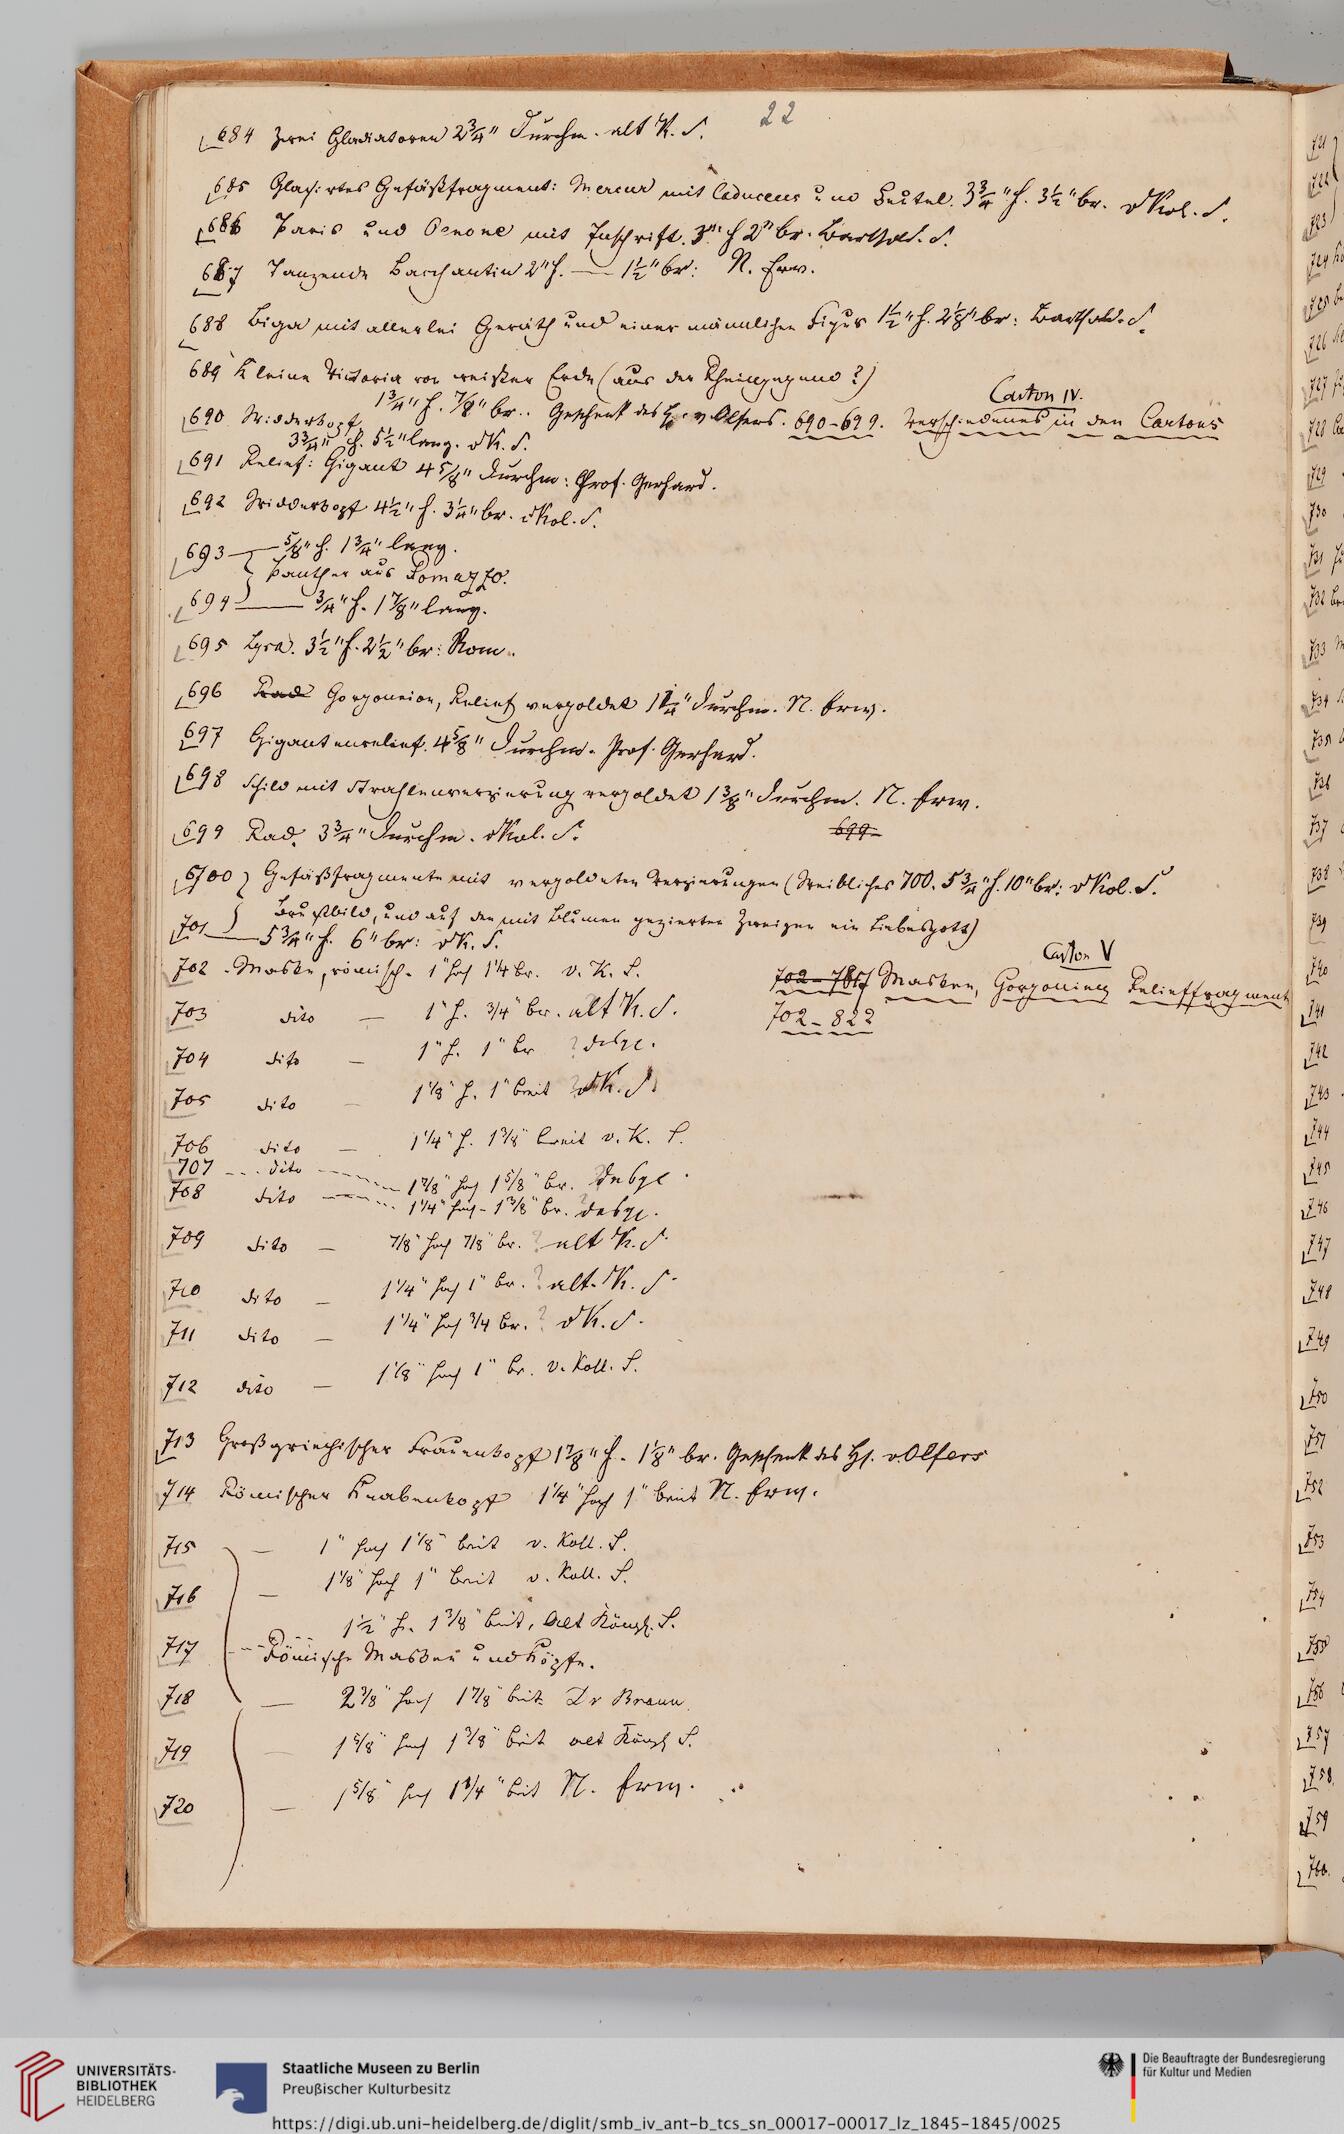 22
684 Zwei Gladiatoren 2 3/4" Durchm. alt K. S.
685 Glasirtes Gefäßfragment: Mercur mit Caduceus und Beutel. 3 3/4" h. 3 1/2" br. v Kol. S.
686 Paris und Oenone mit Inschrift. 3" h 2" br. Barthold. S.
687 Tanzende Bacchantin 2" h. — 1 1/2" br: N. Erw.
688 Biga mit allerlei Geräth und einer männlichen Figur 1 1/2" h. 2 1/8" br: Barthold. S.
689 Kleine Victoria von weißer Erde (aus der Rheingegend?)
1 3/4" h. 7/8" br.. Geschenk des H. v Olfers.
Carton IV.
690-699. Verschiedenes in den Cartons
690 Widderkopf
3 3/4" h. 5 1/2" lang. v K. S.
691 Relief: Gigant 4 5/8" Durchm: Prof. Gerhard.
692 Widderkopf 4 1/2" h. 3 1/4" br. v Kol. S.
693 — 5/8" h. 1 3/4" lang.
Panther aus Pomazzo.
694 — 3/4" h. 1 7/8" lang.
695 Lyra. 3 1/2" h. 2 1/2" br: Rom.
696 Rad Gorgoneion, Relief vergoldet 1 1/4" Durchm. N. Erw.
697 Gigantenrelief. 4 5/8" Durchm. Prof. Gerhard.
698 Schild mit Strahlenverzierung vergoldet 1 3/8" Durchm. N. Erw.
699 Rad. 3 3/4" Durchm. v Kol. S.
699
700 Gefäßfragmente mit vergoldeten Verzierungen (Weibliches 700. 5 3/4" h. 10" br: v Kol. S.
Brustbild, und auf den mit Blumen gezierten Zweigen ein Liebesgott)
701 — 5 3/4" h. 6" br: v K. S.
Carton V
702-785 Masken, Gorgonien Relieffragmente
702-822
702 - Maske, römisch - 1" hoch 1 1/4 br. v. K. S.
703 dito — 1" h. 3/4" br. alt K. S.
704 dito — 1" h. 1" br ? desgl.
705 dito — 1 1/8" h. 1" breit v K. S.
706 dito — 1 1/4" h. 1 3/8" breit v. K. S.
707 dito 1 7/8" hoch 1 5/8" br. ? desgl.
708 dito 1 1/4" hoch - 1 3/8" br. ? desgl.
709 dito — 7/8" hoch 7/8" br. ? alt K. S.
710 dito — 1 1/4" hoch 1" br. ? alt. K. S.
711 dito — 1 1/4" hoch 3/4 br. ? v K. S.
712 dito — 1 1/8" hoch 1" br. v. Koll. S.
713 Großgriechischer Frauenkopf 1 7/8" h. 1 1/8" br. Geschenk des H. v. Olfers
714 Römischer Knabenkopf 1 1/4" hoch 1" breit N. Erw.
715 — 1" hoch 1 1/8" breit v. Koll. S.
716 — 1 1/8" hoch 1" breit v. Koll. S.
1 1/2" h. 1 3/8" breit, Alt Königl. S.
717 Römische Masken und Köpfe.
718 — 2 3/8" hoch 1 7/8" breit Dr Braun
719 — 1 5/8" hoch 1 3/8" breit alt Königl S.
720 — 1 5/8" hoch 1 3/4" breit N. Erw.
721
722
723
724
725
726
727
728
729
730
731
732
733
734
735
736
737
738
739
740
741
742
743
744
745
746
747
748
749
750
751
752
753
754
755
756
757
758
759
760
UNIVERSITÄTS-
BIBLIOTHEK
HEIDELBERG
Staatliche Museen zu Berlin
Preußischer Kulturbesitz
Die Beauftragte der Bundesregierung
für Kultur und Medien
https://digi.ub.uni-heidelberg.de/diglit/smb_iv_ant-b_tcs_sn_00017-00017_lz_1845-1845/0025